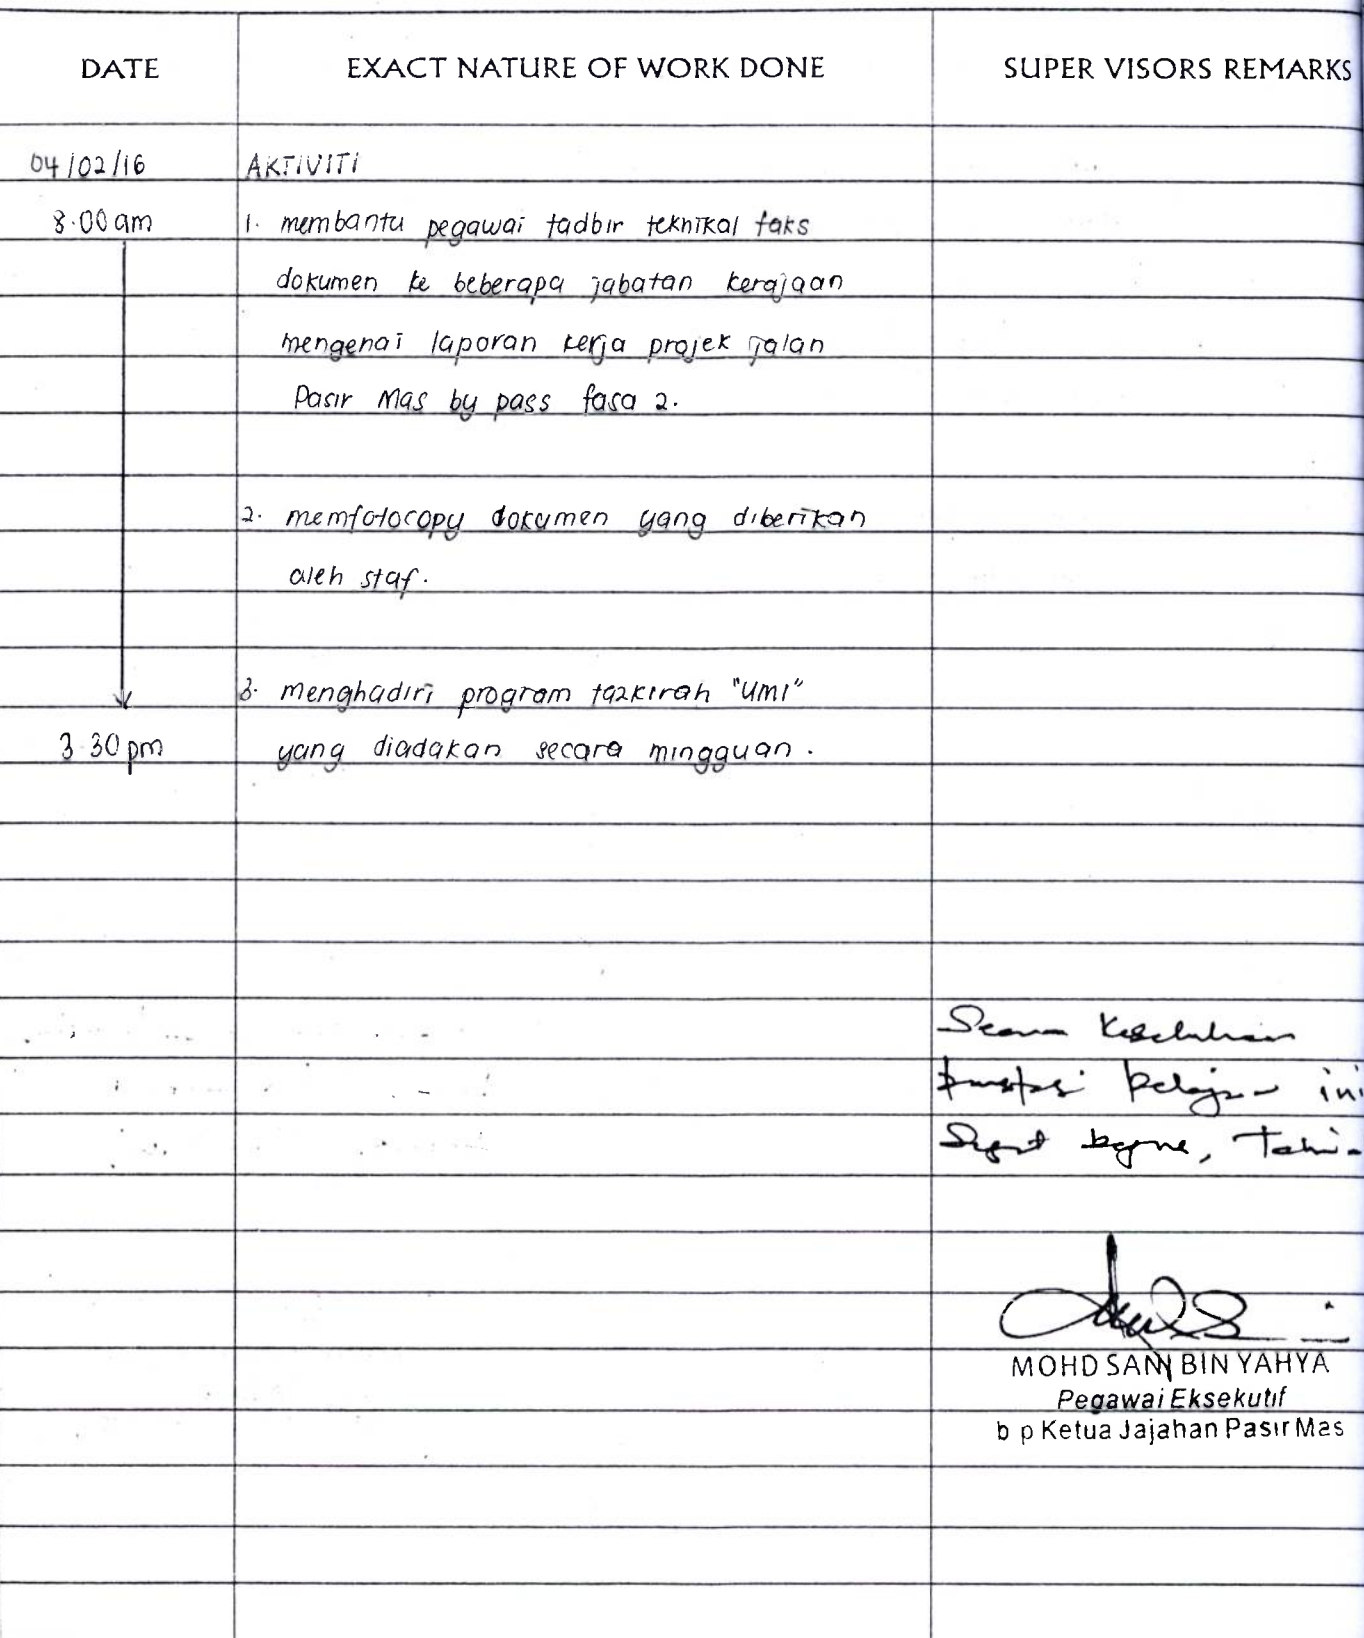 DATE EXACT NATURE OF WORK DONE SUPER VISORS REMARKS
04/02/16 AKTIVITI
8.00 am 1. membantu pegawai tadbir teknikal faks
dokumen ke beberapa jabatan kerajaan
mengenai laporan kerja projek jalan
Pasir Mas by pass fasa 2.
2. memfotocopy dokumen yang diberikan
oleh staf.
3. menghadiri program tazkirah "UMI"
3.30 pm yang diadakan secara mingguan.
Secara Keseluruhan
prestasi pelajar ini
MOHD SANI BIN YAHYA
Pegawai Eksekutif
b p Ketua Jajahan Pasir Mas